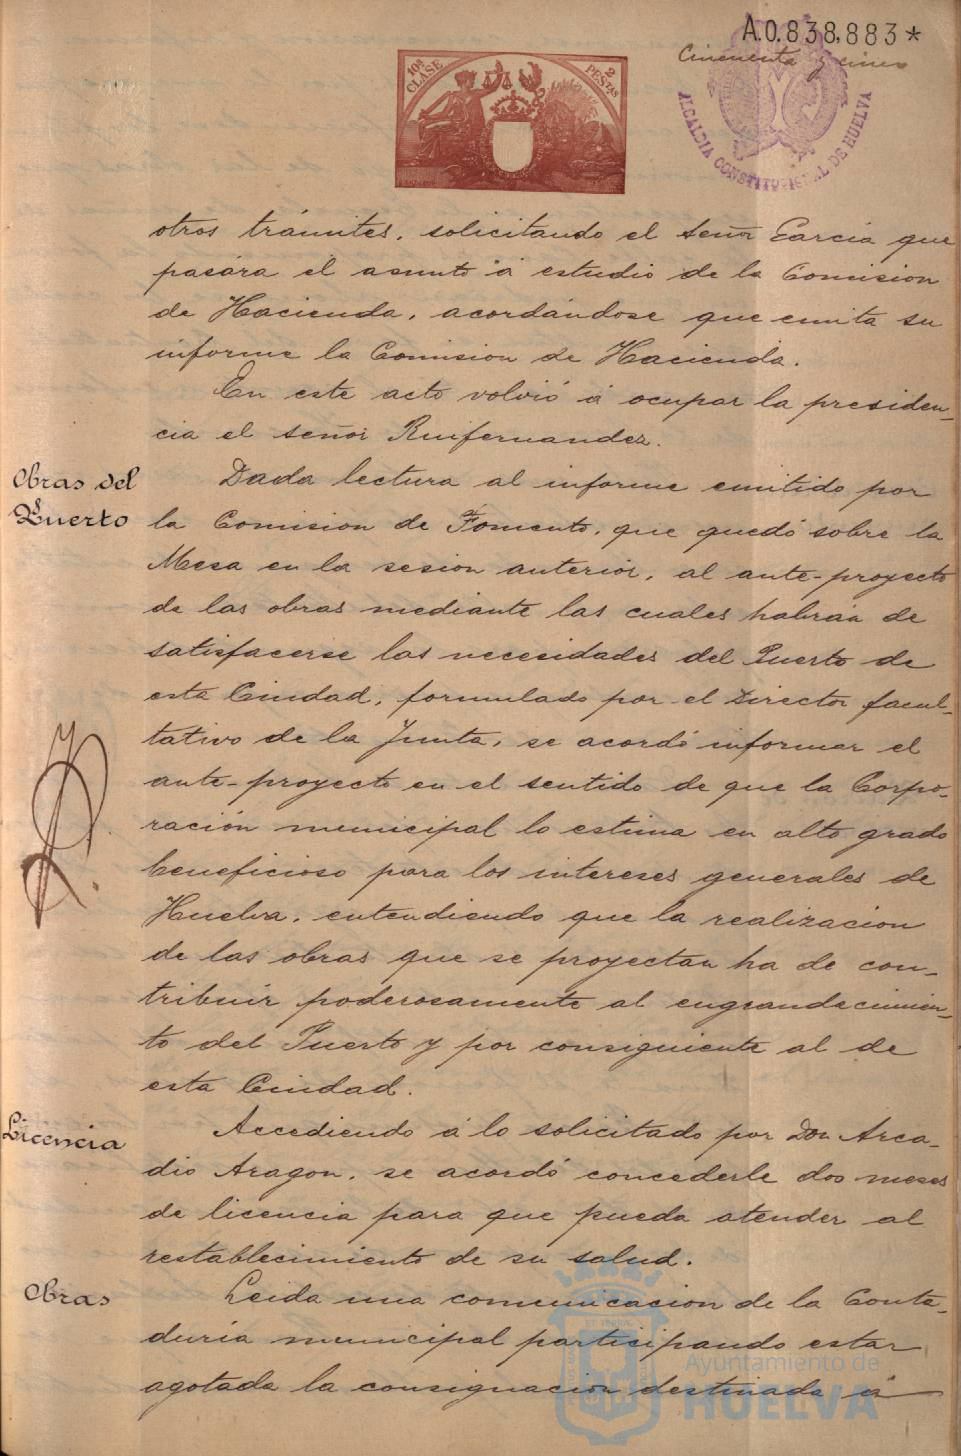 A.0.838,883*
Cincuenta y cinco
10ª CLASE
2 PESTAS
ALCALDIA CONSTITUCIONAL DE HUELVA
otros trámites, solicitando el Señor Garcia que
pasára el asunto á estudio de la Comision
de Hacienda, acordándose que emita su
informe la Comision de Hacienda.
En este acto volvió á ocupar la presiden-
cia el señor Ruifernandez.
Obras del
Puerto
Dada lectura al informe emitido por
la Comision de Fomento, que quedó sobre la
Mesa en la sesion anterior, al ante-proyecto
de las obras mediante las cuales habrán de
satisfacerse las necesidades del Puerto de
esta Ciudad, formulado por el Director facul-
tativo de la Junta, se acordó informar el
ante-proyecto en el sentido de que la Corpo-
ración municipal lo estima en alto grado
beneficioso para los intereses generales de
Huelva, entendiendo que la realizacion
de las obras que se proyectan ha de con-
tribuir poderosamente al engrandecimien-
to del Puerto y por consiguiente al de
esta Ciudad.
Licencia
Accediendo á lo solicitado por Don Arca-
dio Aragon, se acordó concederle dos meses
de licencia para que pueda atender al
restablecimiento de su salud.
Obras
Leida una comunicacion de la Conta-
duría municipal participando estar
agotada la consignacion destinada á
Ayuntamiento de
HUELVA